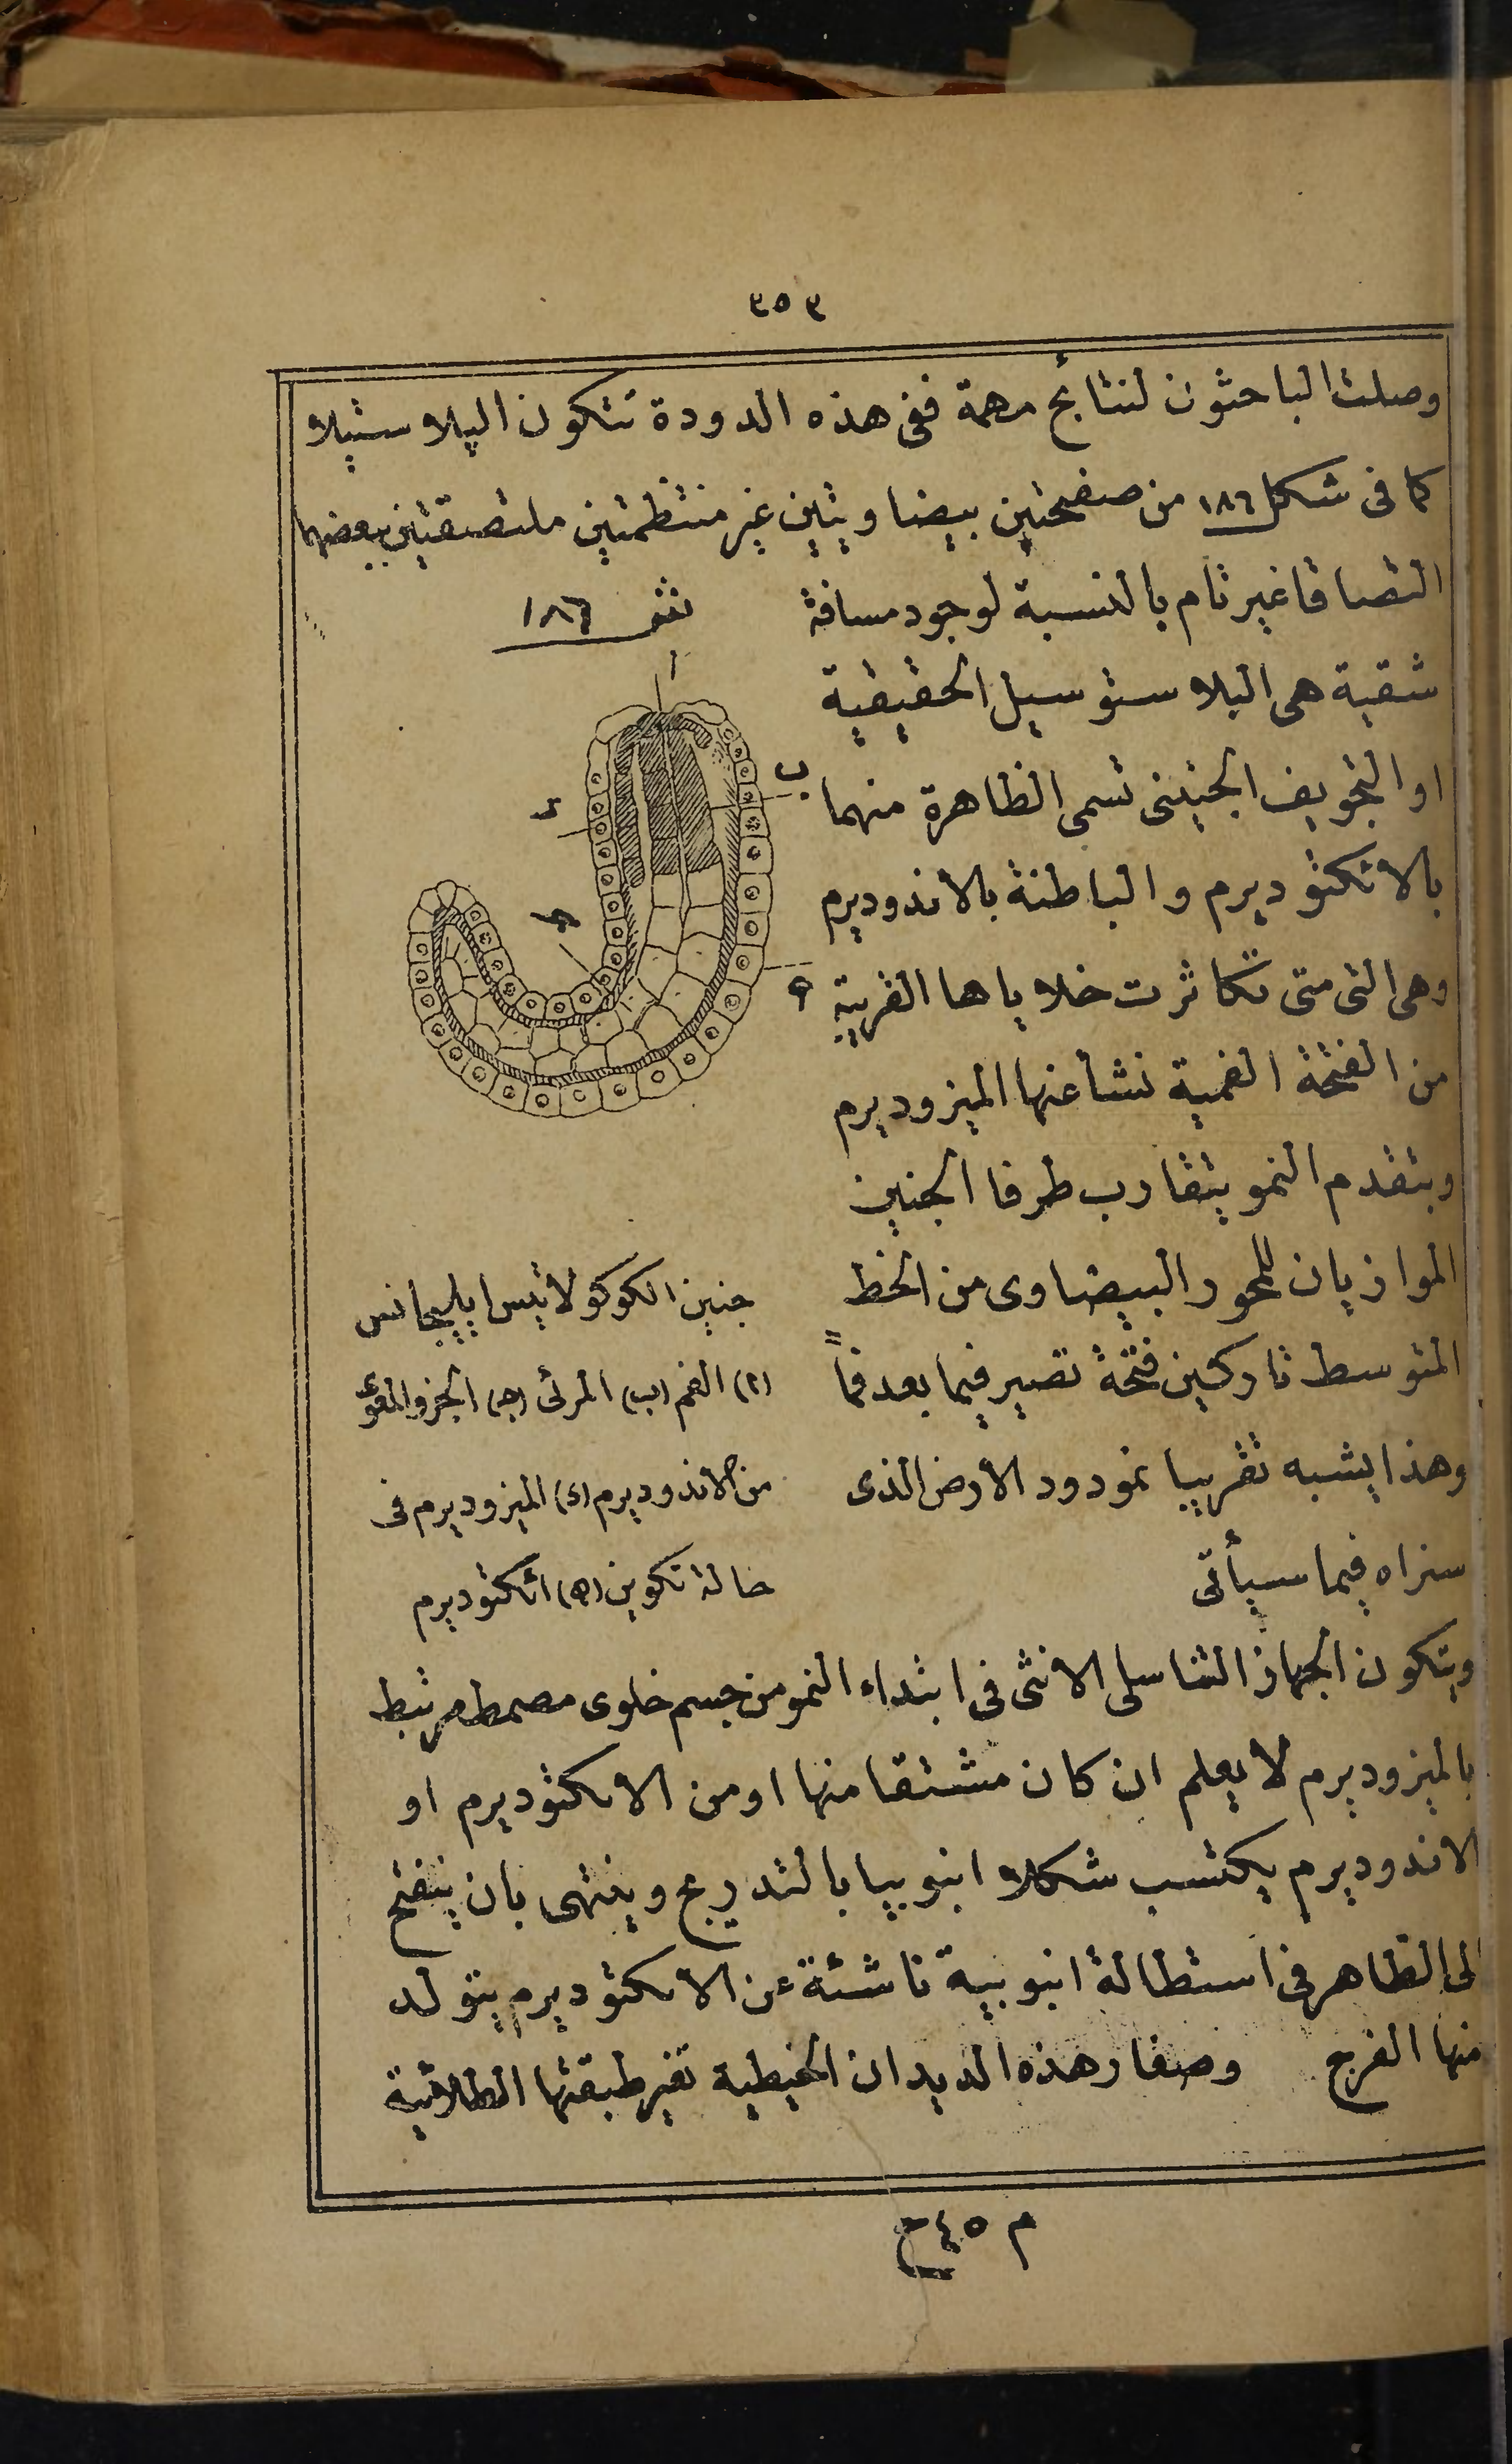 ٣٥٣
وصلت الباحثون لنتائج مهمة ففى هذه الدودة تتكون البلاستيلا
كما فى شكل ١٨٦ من صفيحتين بيضاويتين غير منتظمتين ملتصقتين ببعضهما
التصاقا غير تام بالنسبة لوجود مسافة
شقية هى البلاستوسيل الحقيقية
او التجويف الجنينى تسمى الظاهرة منهما
بالاتكتوديرم والباطنة بالاندوديرم
وهى التى متى تكاثرت خلاياها القريبة
من الفتحة الفمية نشأ عنها الميزوديرم
وبتقدم النمو يتقارب طرفا الجنين
الموازيان للمحور البيضاوى من الخط
المتوسط تاركين فتحة تصير فيما بعد فماً
وهذا يشبه تقريبا نمو دود الارض الذى
سنراه فيما سيأتى
١٨٦
ا
ب
د
ج
ه
جنين الكوكولانيس ايليجانس
(ا) الفم (ب) المرئى (ج) الجزء المعوى
من الاندوديرم (د) الميزوديرم فى
حالة تكوين (ه) اتكتوديرم
ويتكون الجهاز التناسلى الانثى فى ابتداء النمو من جسم خلوى مصمط مرتبط
بالميزوديرم لا يعلم ان كان مشتقا منها او من الاكتوديرم او
الاندوديرم يكتسب شكلا انبوبيا بالتدريج وينتهى بان ينفتح
الى الظاهر فى استطالة انبوبية ناشئة عن الاكتوديرم يتولد
منها الفرج وصغار هذه الديدان الخيطية تغير طبقتها الطلائية
م ٤٥ ح